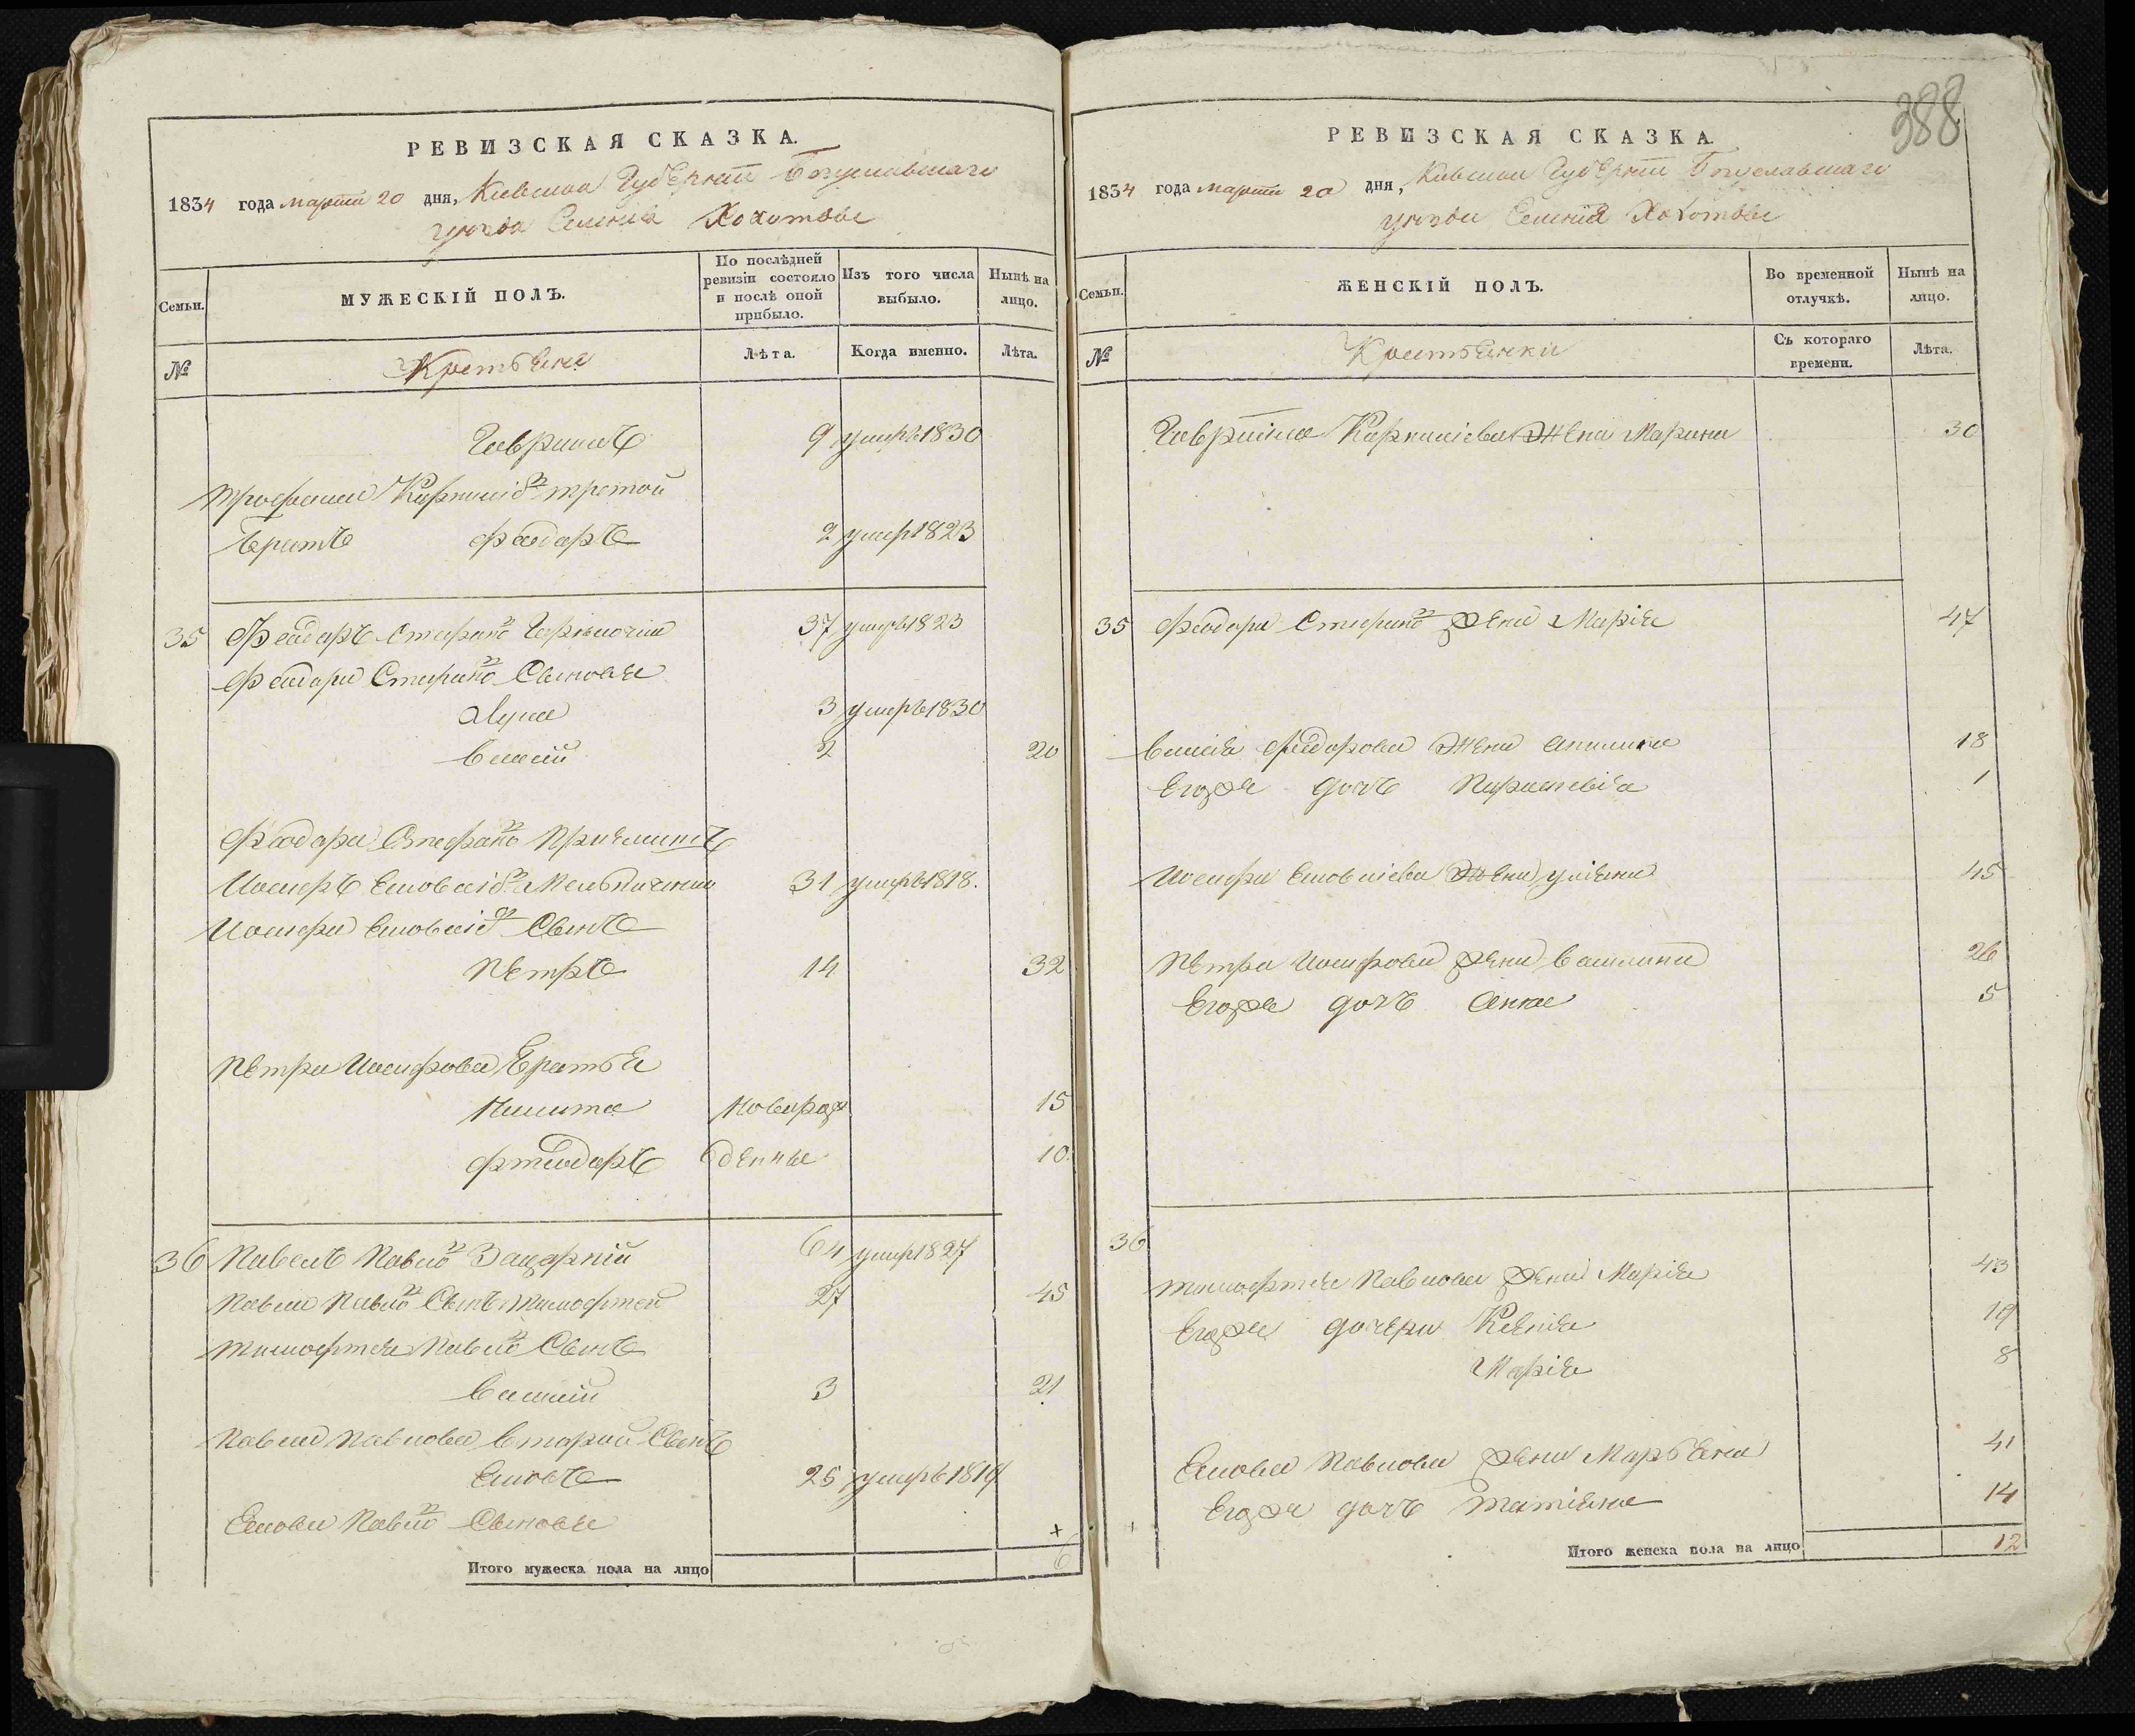 РЕВИЗСКАЯ СКАЗКА.
1834 года марта 20 дня, Киевской Губернїи Богуславскаго
уезда Селенїя Хохитвы
Семьи.
МУЖЕСКІЙ ПОЛЪ.
По послѣдней ревизіи состояло и послѣ оной прибыло.
Изъ того числа выбыло.
Нынѣ на лицо.
№
Крестьяне
Лѣта.
Когда именно.
Лѣта.
Гаврило 9 умръ 1830
Трофима Карниліева третой
Братъ Феодоръ 2 умер 1823
35 Феодоръ Стефанов 37 умеръ 1823
Феодора Стефанов Сыновья
Лука 3 умеръ 1830
Василій 2 20
Феодора Стефанов Приемышъ
Иосифъ Яковлев 31 умеръ 1818.
Иосифа Яковлев Сынъ
Петръ 14 32
Петра Иосифова Братья
Никита новорож 15
Фтеодоръ денные 10.
36 Павелъ Павлов 64 умер 1827
Павла Павлов Сынъ Тимофтей 27 45
Тимофтея Павлов Сынъ
Василій 3 21
Павла Павлова второй Сынъ
Яковъ 25 умеръ 1819
Якова Павлов Сыновья
Итого мужеска пола на лицо 6
388
РЕВИЗСКАЯ СКАЗКА.
1834 года марта 20 дня, Киевской Губернїи Богуславскаго
уезда Селенїя Хохитвы
Семьи.
ЖЕНСКІЙ ПОЛЪ.
Во временной отлучкѣ.
Нынѣ на лицо.
№
Крестьянки
Съ котораго времени.
Лѣта.
Гаврїила Карниліева Жена Марина 30
35 Феодора Стефанов Жена Марія 47
Василія Феодорова Жена Акилина 18
Егожя дочъ Параскевія 1
Иосифа Яковлева Жена Уліяна 45
Петра Иосифова Жена Василина 26
Егожя дочъ Анна 5
36
Тимофтея Павлова Жена Марія 43
Егожя дочери Ксенія 19
Марія 8
Якова Павлова Жена Марьяна 41
Егожя дочъ Татіяна 14
Итого женска пола на лицо 12